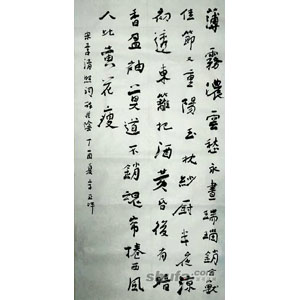 薄霧濃雲愁永晝瑞腦銷金獸
佳節又重陽玉枕紗廚半夜涼
初透東籬把酒黃昏後有暗
香盈袖莫道不銷魂簾捲西風
人比黃花瘦
宋李清照詞醉花陰 丁酉夏李